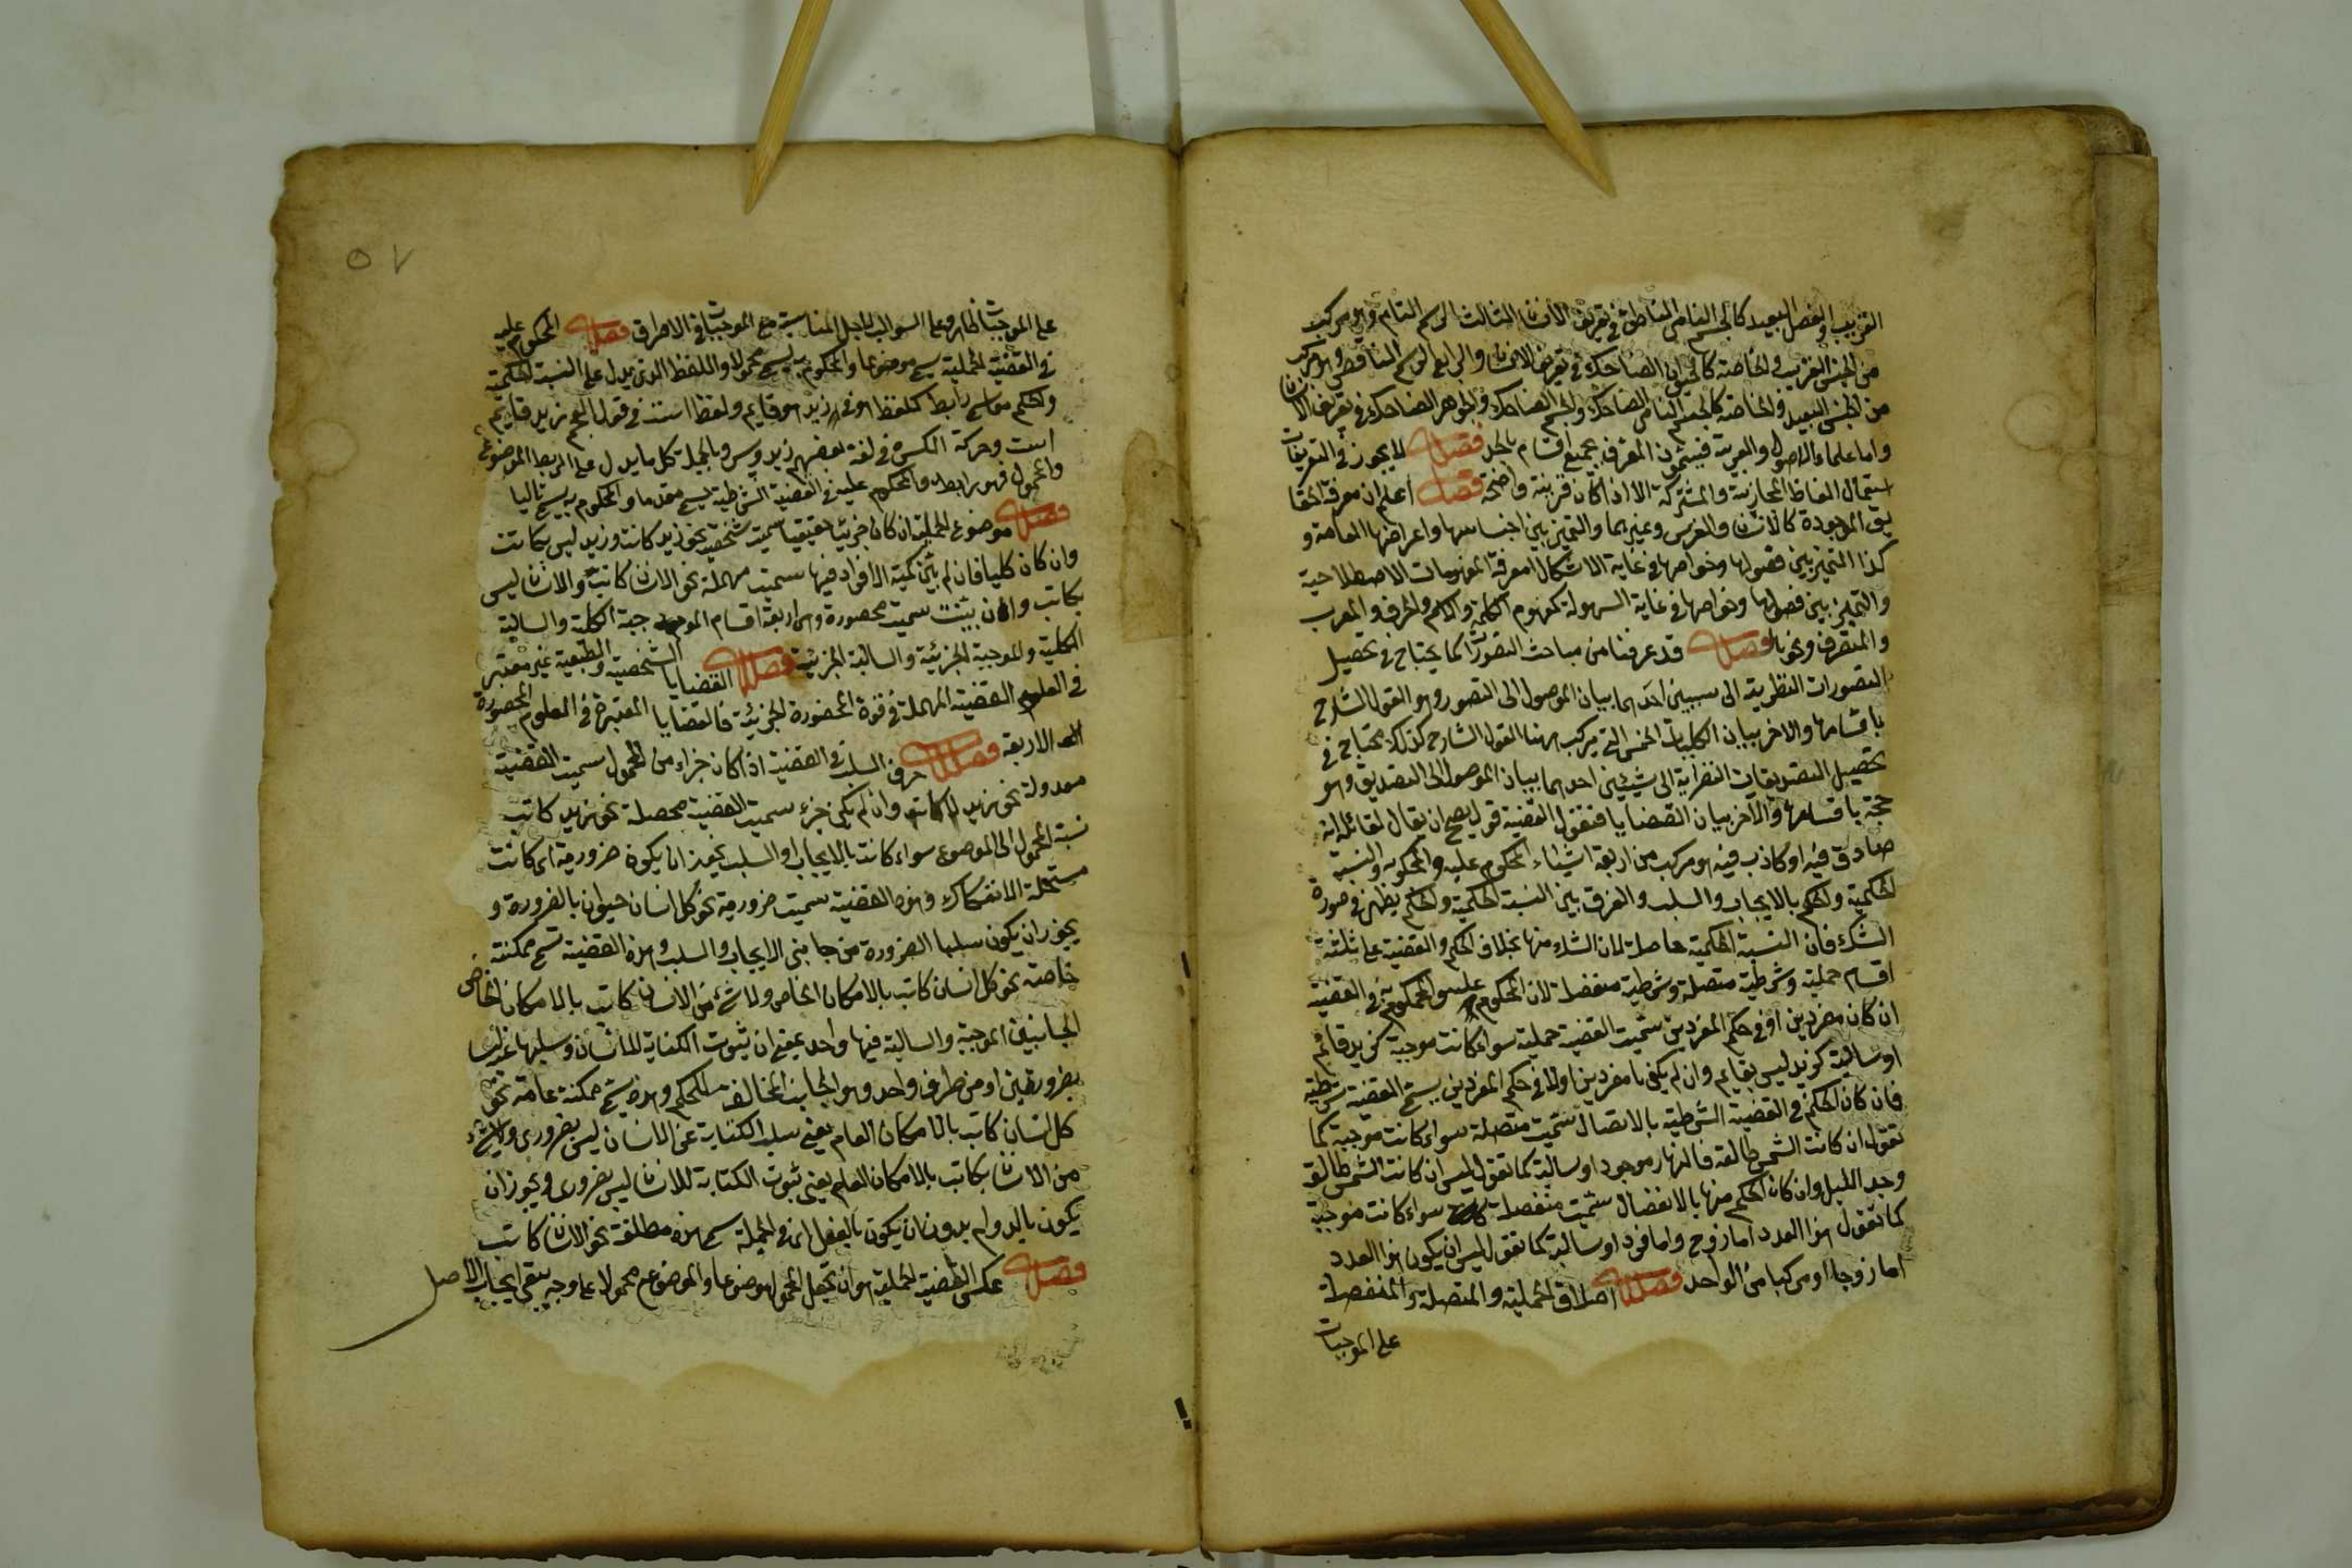 القريب والفصل البعيد كالجسم النامي الناطق في تعريف الانسان الثالث الرسم التام وهو مركب
من الجنس القريب والخاصة كالحيوان الضاحك في تعريف الانسان والرابع الرسم الناقص وهو مركب
من الجنس البعيد والخاصة كالجسم النامي الضاحك والجسم الضاحك والجوهر الضاحك في تعريف الانسان
واما علماء الاصول والعربية فيسمون المعرف بجميع اقسام بالحد فصل لا يجوز في التعريفات
استعمال الفاظ المجازية والمشتركة الا اذا كان قرينة واضحة فصل اعلم ان معرفة الحقا
يق الموجودة كالانسان والفرس وغيرهما والتميز بين اجناسها واعراضها العامة و
كذا التميز بين فصولها وخواصها في غاية الاشكال امعرفة المفهومات الاصطلاحية
والتميز بين فصولها وخواصها في غاية السهولة كمفهوم الكلمة والكلام والحرف والمعرب
والمتصرف ونحوها فصل قد عرفنا من مباحث التصورات كما يحتاج في تحصيل
التصورات النظرية الى سببين احدهما بيان الموصول الى التصور وهو القول الشارح
باقسامها والاخر بيان الكليات الخمس التي يتركب منها القول الشارح كذلك محتاج في
تحصيل التصديقات النظرية الى شيئين احدهما بيان الموصول الى التصديق وهو
حجة باقسامها والآخر بيان القضايا فنقول القضية قول يصح ان يقال لقائله انه
صادق فيه او كاذب فيه هو مركب من اربعة اشياء المحكوم عليه والمحكوم به والنسبة
الحكمية والحكم بالايجاب والسلب والفرق بين النسبة الحكمية والحكم يظهر في صورة
الشك فان النسبة الحكمية حاصلة لان الشك منها بخلاف الحكم والقضية على ثلثة
اقسام حملية وشرطية متصلة وشرطية منفصلة لان المحكوم عليه والمحكوم به في القضية
ان كان مفردين او في حكم المفردين سميت القضية حملية سواء كانت موجبة كزيد قائم
او سالبة كزيد ليس بقايم وان لم يكونا مفردين اولا في حكم المفردين يسمى القضية شرطية
فان كان الحكم في القضية الشرطية بالاتصال سميت متصلة سواء كانت موجبة كما
تقول ان كانت الشمس طالعة فالنهار موجود او سالبة كما تقول ليس ان كانت الشمس طالعة
وجد الليل وان كان الحكم منها بالانفصال سميت منفصلة سواء كانت موجبة
كما تقول هذا العدد اما زوج واما فرد او سالبة كما تقول ليس ان يكون هذا العدد
اما زوجا او مركبا من الواحد فصل اطلاق الحملية والمتصلة والمنفصلة
على الموجبات
٥٧
على الموجبات ظاهر وعلى السوالب لاجل المناسبة مع الموجبات في الاطراف فصل المحكوم عليه
في القضية الحملية يسمى موضوعا والمحكوم به يسمى محمولا واللفظ الذي يدل على النسبة الحكمية
والحكم معا يسمى رابط كلفظ هو في زيد هو قايم ولفظ است في قول العجم زيد قايم
است وحركة الكسرة في لغة بعضهم زيد وبالجملة كل ما يدل على الربط الموضوع
والمحمول فهو رابط والمحكوم عليه في القضية الشرطية يسمى مقدما والمحكوم به يسمى تاليا
فصل موضوع الحملية ان كان جزئيا حقيقيا سميت شخصية نحو زيد كاتب وزيد ليس بكاتب
وان كان كليا فان لم يبين كمية الافراد فيها سميت مهملة نحو الانسان كاتب والانسان ليس
بكاتب وان بينت سميت محصورة وهي اربعة اقسام الموجبة الكلية والسالبة
الكلية والموجبة الجزئية والسالبة الجزئية فصل القضايا الشخصية والطبيعية غير معتبر
في العلوم القضية المهملة في قوة المحصورة الجزئية فالقضايا المعتبرة في العلوم المحصورة
الاربعة فصل حرف السلب في القضية اذا كان جزاء من المحمول سميت القضية
معدولة نحو زيد لا كاتب وان لم يكن جزء سميت القضية محصلة نحو زيد كاتب
نسبة المحمول الى الموضوع سواء كانت بالايجاب او السلب يجوز ان يكون ضرورية اى كانت
مستحيلة الانفكاك وهذه القضية سميت ضرورية نحو كل انسان حيوان بالضرورة و
يجوز ان يكون سلبها الضرورة من جانبي الايجاب والسلب وهذه القضية تسمى ممكنة
خاصة نحو كل انسان كاتب بالامكان الخاص ولا شئ من الانسان كاتب بالامكان الخاص
الجانبين الموجبة والسالبة فيها واحد بمعنى ان ثبوت الكتابة للانسان وسلبها عنه ليسا
بضروريين او من طرف واحد وهو الجانب المخالف للحكم وهذه يسمى ممكنة عامة نحو
كل انسان كاتب بالامكان العام يعنى سلب الكتابة عن الانسان ليس بضروري ولا شئ
من الانسان بكاتب بالامكان العام يعنى ثبوت الكتابة للانسان ليس بضروري ويجوز ان
يكون بالدوام بدون ان يكون بالفعل اى في الجملة يسمى هذه مطلقة نحو الانسان كاتب
فصل عكس القضية الحملية هو ان تجعل المحمول موضوعا والموضوع محمولا على وجه يبقى ايجاب الاصل